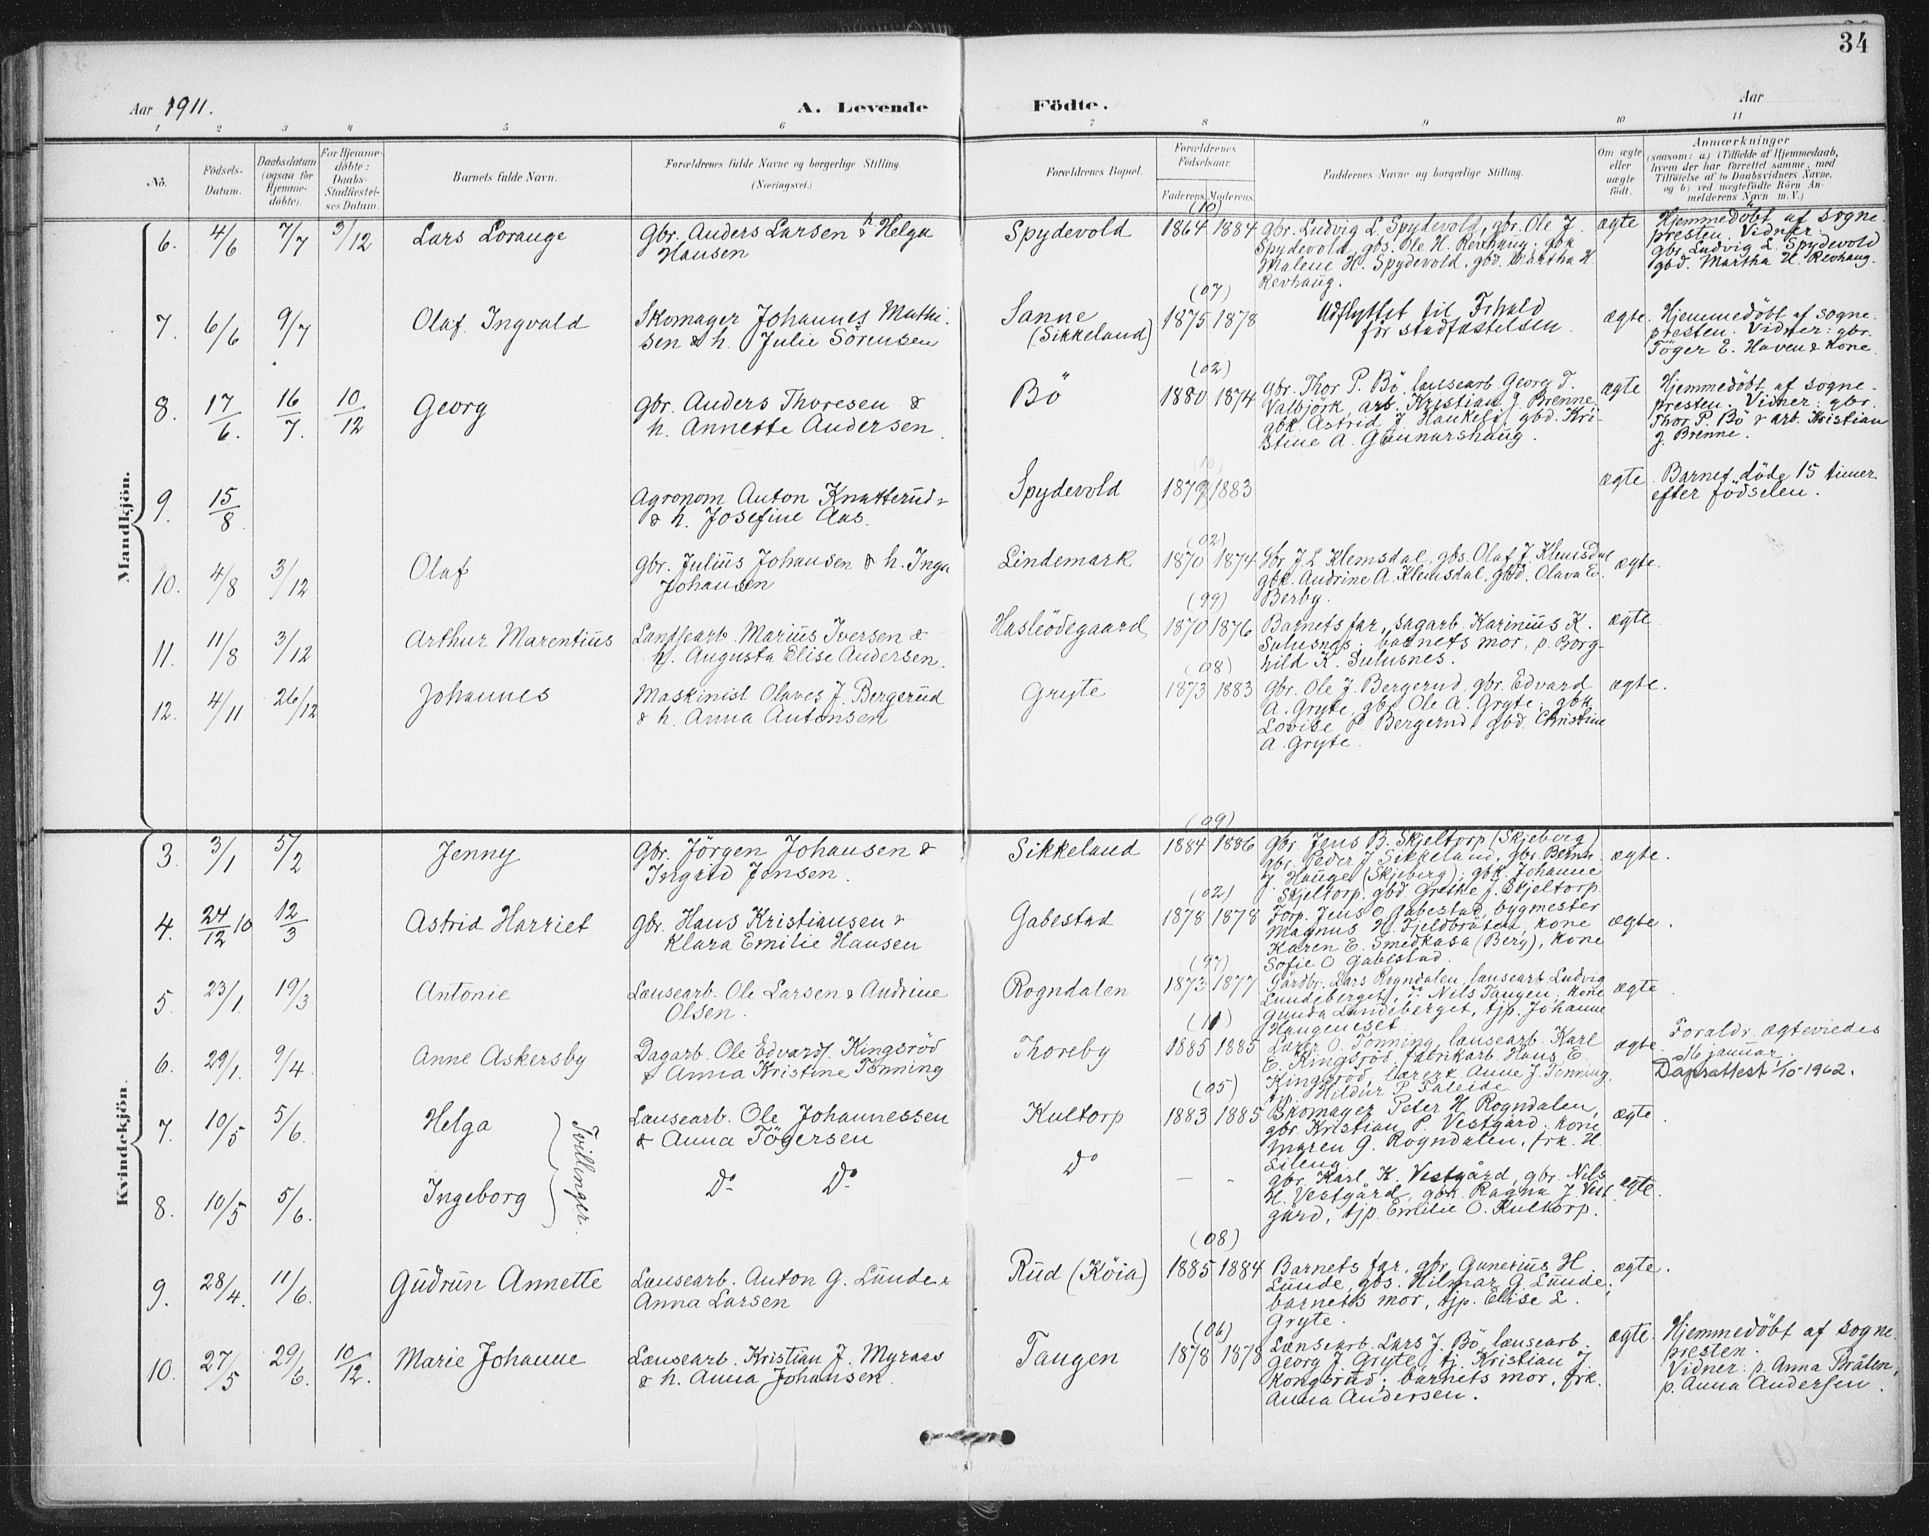 34
Aar 1911.
A. Levende Födte.
Aar
1 2 3 4 5 6 7 8 9 10 11
No.
Födsels-Datum.
Daabsdatum (ogsaa for Hjemmedöbte).
For Hjemmedöbte: Daabs-Stadfæstelses Datum.
Barnets fulde Navn.
Forældrenes fulde Navne og borgerlige Stilling. (Næringsvei.)
Forældrenes Bopæl.
Forældrenes Födselsaar.
Faderens. Moderens.
Faddernes Navne og borgerlige Stilling.
Om ægte eller uægte födt.
Anmærkninger
(saasom: a) i Tilfælde af Hjemmedaab, hvem der har forrettet samme, med Tilföielse af to Daabsvidners Navne, og b) ved uægtefödte Börn Anmelderens Navn m. V.)
Mandkjön.
6. 4/6 7/7 3/12 Lars Lorange
Gbr. Anders Larsen & h. Helga
Hansen
Spydevold
(10)
1864 1884
gbr. Ludvig L. Spydevold, gbr. Ole J.
Spydevold, gbs. Ole H. Revhaug; gbk
Malene H. Spydevold, gbd. Martha H
Revhaug.
ægte
Hjemmedöbt af sogne-
presten. Vidner:
gbr. Ludvig L. Spydevold
gbd. Martha H. Revhaug.
7. 6/6 9/7 Olaf Ingvald
Skomager Johannes Mathi-
sen & h. Julie Sörensen
Sanne
(Sikkeland)
(07)
1875 1878
Udflyttet til Frhald
för stadfæstelsen.
ægte.
Hjemmedöbt af sogne-
presten. Vidner: gbr.
Töger E. Haven & kone
8. 17/6. 16/7. 10/12 Georg
Gbr. Anders Thoresen &
h. Annette Andersen.
Bö
(02)
1880 1874
gbr. Thor P. Bö, lausearb. Georg T.
Valbjörk, arb. Kristian J. Brenne
gbk Astrid J. Haukelö, gbd. Kri-
stine A. Gunnarshaug.
ægte
Hjemmedöbt af sogne-
presten. Vidner: gbr.
Thor P. Bö & arb. Kristian
J. Brenne.
9. 15/8
Agronom Anton Knatterud
& h. Josefine Aas.
Spydevold
1879 1883
ægte.
Barnet döde 15 timer
efter födselen.
10. 4/8 3/12 Olaf
gbr. Julius Johansen & h. Inga
Johansen
Lindemark
(02)
1870 1874
Gbr J. L Klemsdal, gbs. Olaf J. Klemsdal
gbk. Andrine A. Klemsdal, gbd. Olava E.
Berby.
ægte.
11. 11/8 3/12 Arthur Marentius
Lausearb. Marius Iversen &
h. Augusta Elise Andersen.
Haslèödegaard
(99)
1870 1876
Barnets far, sagarb. Karinius K.
Sulusnes; barnets mor, p. Borg-
hild K. Sulusnes.
ægte.
12. 4/11 26/12 Johannes
Maskinist Olaves J. Bergerud
& h. Anna Antonsen
Gryte
(08)
1873 1883
gbr. Ole J. Bergerud, gbr. Edvard
A. Gryte, gbr Ole A. Gryte; gbk
Lovise P. Bergerud, gbd. Christine
A. Gryte.
ægte.
Kvindekjön.
3. 3/1 5/2 Jenny
Gbr. Jörgen Johansen &
Ingrid Jensen.
Sikkeland
(09)
1884 1886
gbr. Jens B. Skjeltorp (Skjeberg)
gbr. Peder J Sikkeland, gbr. Bernh.
J. Hauge (Skjeberg); gbk. Johanne
Skjeltorp, gbd Grethe J. Skjeltorp.
ægte.
4. 24/12 10 12/3 Astrid Harriet
gbr. Hans Kristiansen &
Klara Emilie Hansen
Gabestad
(02)
1878 1878
Forp. Jens O. Gabestad, bygmester
Magnus H. Fjeldbråten, kone
Karen E. Smedkasa (Berg), kone
Sofie O Gabestad.
ægte.
5. 23/1. 19/3 Antonie
Lausearb. Ole Larsen & Andrine
Olsen.
Rogndalen
(97)
1873 1877
Gårdbr. Lars Rogndalen, lausearb Ludvig
Lundeberget, Nils Tangen, kone
Gunda Lundeberget, tjp. Johanne
Haugeneset
ægte
6. 29/1. 9/4. Anne Askersby
Dagarb. Ole Edvards. Kingsröd
& Anna Kristine Tönning
Thoreby
(11)
1885 1885
Lærer O. Tönning, lausearb. Karl
E. Kingsröd, fabrikarb. Hans E.
Kingsröd, lærerk. Anne J. Tönning,
tp. Hildur P. Faleide
ægte.
Foraldr. ægteviedes
16 januar.
Dåpsattest 1/10-1962.
7. 10/5 5/6. Helga
Lausearb. Ole Johannessen
& Anna Tögersen
Kultorp
(05)
1883 1885
Skomager Peter H Rogndalen,
gbr. Kristian P. Vestgård; kone
Maren G. Rogndalen, frk. H
Lileng
ægte
Tvillinger.
8. 10/5 5/6. Ingeborg
Do Do
Do
- -
gbr. Karl K. Vestgård, gbr. Nils
H. Vestgård, gbk. Ragna J. Vest-
gård, tjp. Emilie O. Kultorp.
ægte.
9. 28/4. 11/6. Gudrun Annette
Lausearb. Anton G. Lunde &
Anna Larsen
Rud (Köia)
(08)
1885 1884
Barnets far, gbr. Gunerius H.
Lunde, gbs. Hilmar G Lunde;
barnets mor, tjp. Elise L.
Gryte.
ægte.
10. 27/5 29/6. 10/12. Marie Johanne
Lausearb. Kristian J. Myraas
& h. Anna Johansen.
Tangen
(06)
1878 1878
Lænsearb. Lars J. Bö, lausearb.
Georg J. Gryte, tj. Kristian J.
Kongsrud; barnets mor, frk.
Anna Andersen.
ægte.
Hjemmedöbt af sogne-
presten.
Vidner: p. Anna Bråten,
p. Anna Andersen.